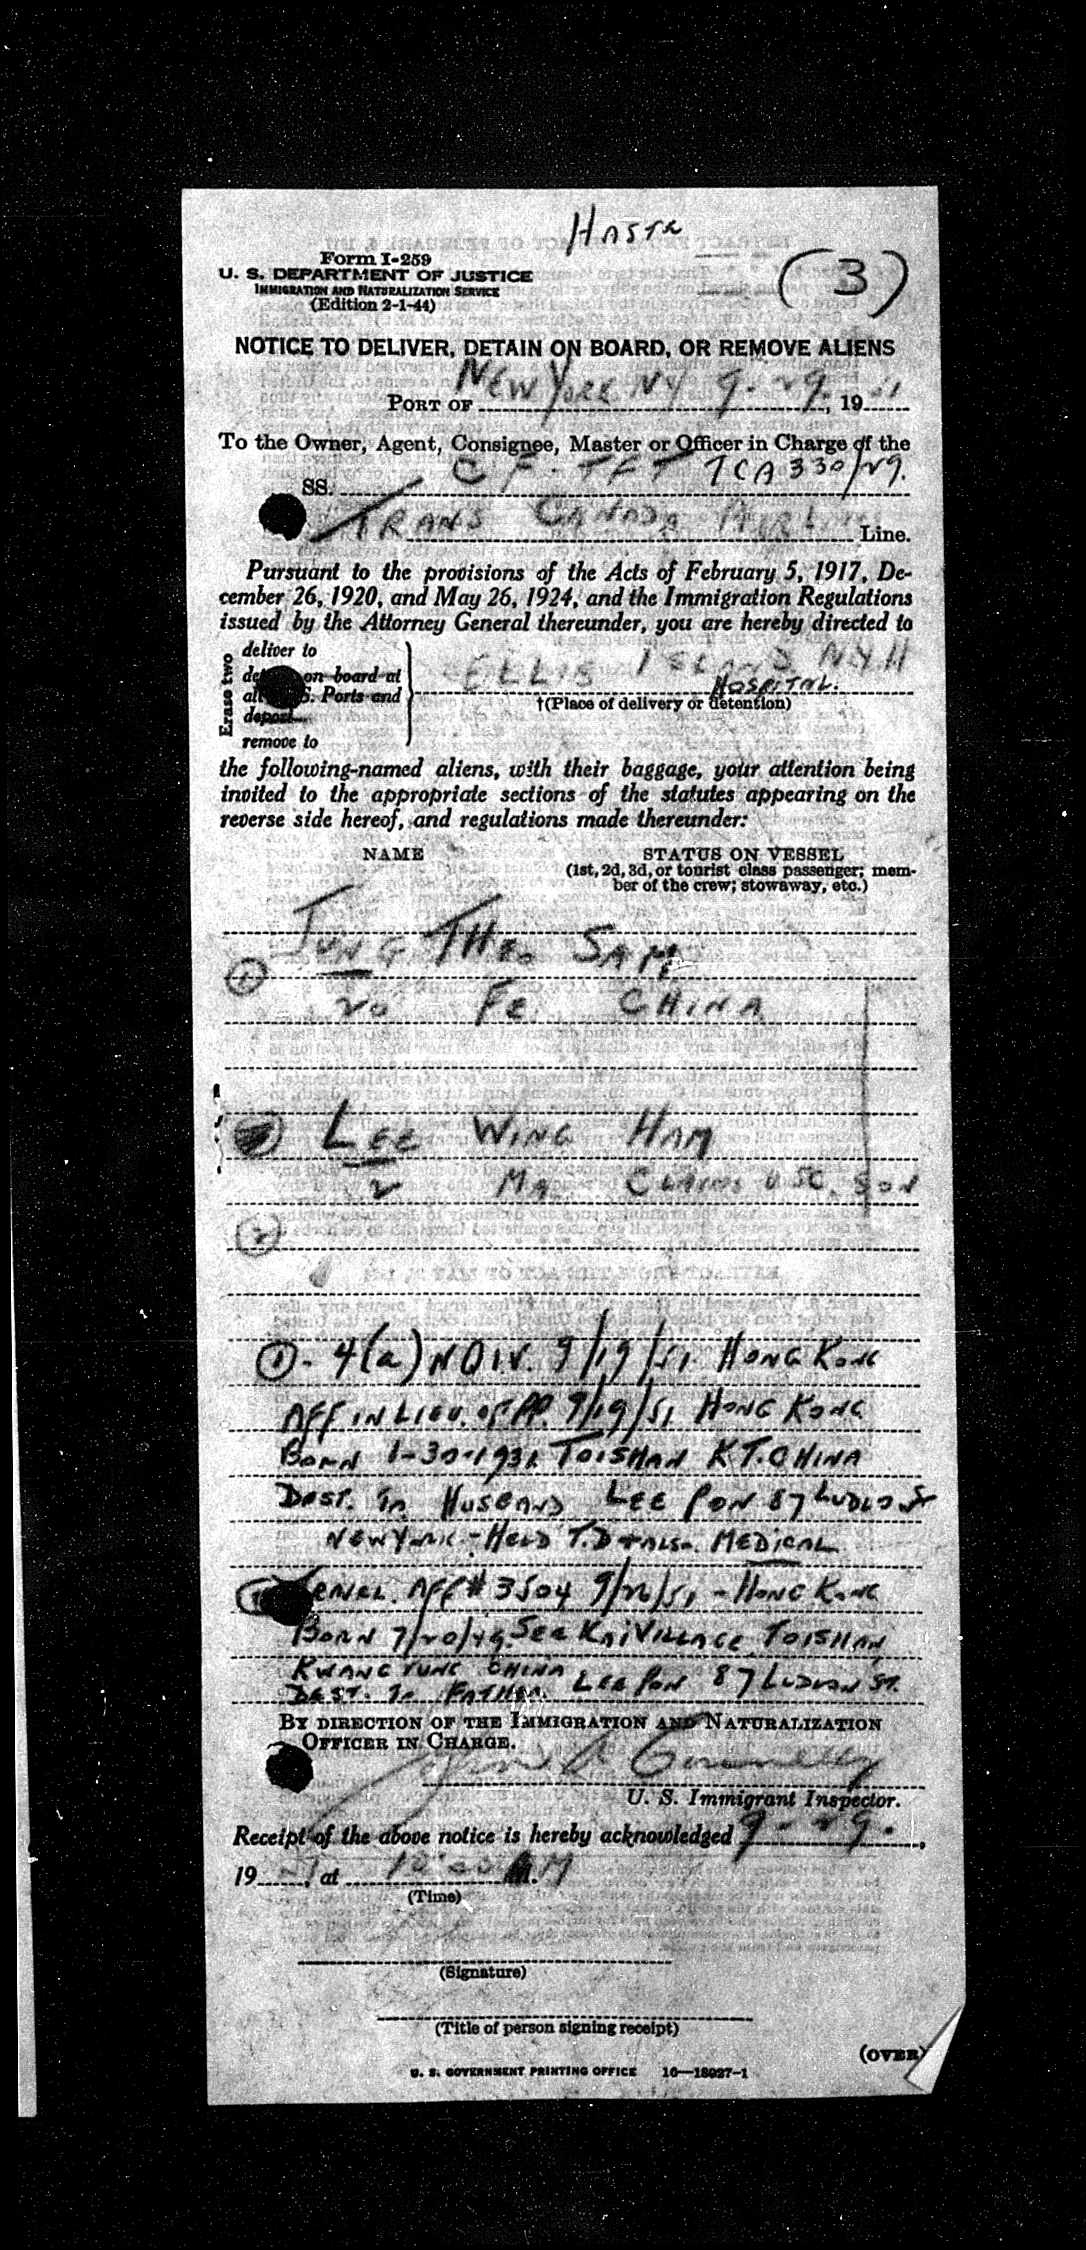 (3)
Form I-259
U. S. DEPARTMENT OF JUSTICE
IMMIGRATION AND NATURALIZATION SERVICE
(Edition 2-1-44)
NOTICE TO DELIVER, DETAIN ON BOARD, OR REMOVE ALIENS
PORT OF NEW YORK NY 9-29-, 19 51
To the Owner, Agent, Consignee, Master or Officer in Charge of the
SS. CF-TFT TCA 330/29.
TRANS CANADA AIR Line.
Pursuant to the provisions of the Acts of February 5, 1917, De-
cember 26, 1920, and May 26, 1924, and the Immigration Regulations
issued by the Attorney General thereunder, you are hereby directed to
Erase two
deliver to
on board at
S. Ports and
deport
remove to
ELLIS ISLAND NYH
HOSPITAL.
†(Place of delivery or detention)
the following-named aliens, with their baggage, your attention being
invited to the appropriate sections of the statutes appearing on the
reverse side hereof, and regulations made thereunder:
NAME STATUS ON VESSEL
(1st, 2d, 3d, or tourist class passenger; mem-
ber of the crew; stowaway, etc.)
JUNG SAM
(1)
20 Fe. CHINA
LEE WING HAM
2 MA CLAIMS USC. SON
(2)
(1) - 4(a) NQIV. 9/19/51 HONG KONG
AFF IN LIEU OF PP. 9/19/51 HONG KONG
BORN 1-30-1931 TOISHAN KT. CHINA
DEST. TO HUSBAND LEE PON 87 LUDLOW ST
NEW YORK - HELD MEDICAL
AFF# 3504 9/26/51 - HONG KONG
BORN 7/20/49. SEE KAI VILLAGE TOISHAN
KWANGTUNG CHINA
DEST. TO FATHER LEE PON 87 LUDLOW ST.
BY DIRECTION OF THE IMMIGRATION AND NATURALIZATION
OFFICER IN CHARGE.
U. S. Immigrant Inspector.
Receipt of the above notice is hereby acknowledged 9-29-,
19 51, at M
(Time)
(Signature)
(Title of person signing receipt)
(OVER)
U. S. GOVERNMENT PRINTING OFFICE 16—18027-1